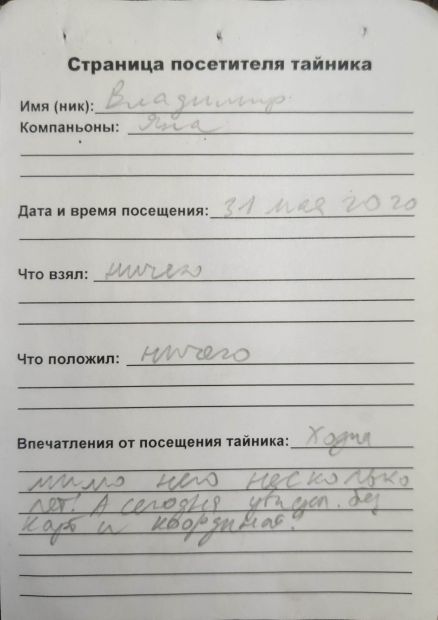 Страница посетителя тайника
Имя (ник): Владимир
Компаньоны: Яна
Дата и время посещения: 31 мая 2020
Что взял: ничего
Что положил: ничего
Впечатления от посещения тайника: Ходил
мимо него несколько
лет! А сегодня увидел. без
карт и координат!